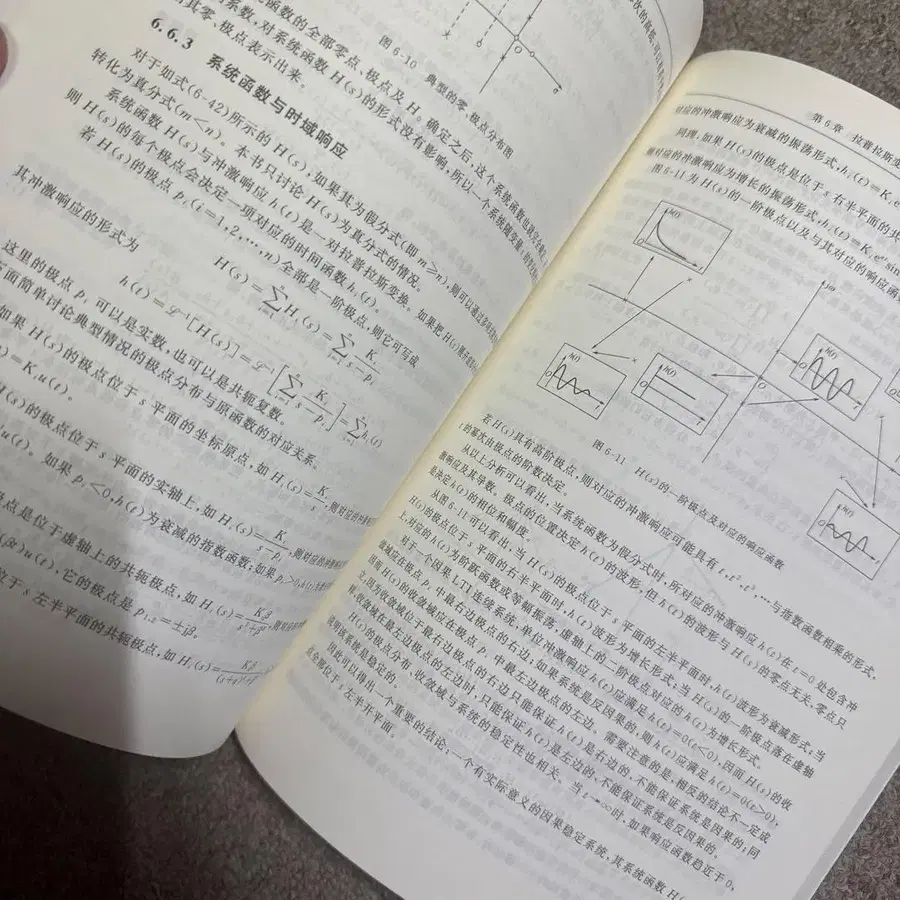 函数的全部零点、极点及H。确定之后,这个系统函数也就完全确定
的系数,对系统函数H(s)的形式没有影响,所以一个系统
其零、极点表示出来。
图6-10 典型的零、极点分布图
6.6.3 系统函数与时域响应
对于如式(6-42)所示的H(s),如果其为假分式(即m≥n),则可以通过
转化为真分式(m<n)。本书只讨论H(s)为真分式的情况。
系统函数H(s)与冲激响应h(t)是一对拉普拉斯变换。如果把H(s)展开
则H(s)的每个极点会决定一项对应的时间函数hᵢ(t)。
若H(s)的极点pᵢ(i=1,2,…,n)全部是一阶极点,则它可写成
H(s)=∑Hᵢ(s)=∑Kᵢ/(s-pᵢ)
其冲激响应的形式为
h(t)=ℒ⁻¹[H(s)]=ℒ⁻¹[∑Kᵢ/(s-pᵢ)]=∑hᵢ(t)
这里的极点pᵢ可以是实数,也可以是共轭复数。
面简单讨论典型情况的极点分布与原函数的对应关系。
如果H(s)的极点位于s平面的坐标原点,如Hᵢ(s)=Kᵢ/s,则对应的
=Kᵢu(t)。
H(s)的极点位于s平面的实轴上,如Hᵢ(s)=Kᵢ/(s-pᵢ),则对应的
u(t)。如果pᵢ<0,h(t)为衰减的指数函数;如果pᵢ>0,h(t)
极点是位于虚轴上的共轭极点,如Hᵢ(s)=Kβ/(s²+β²),则对应的
(βt)u(t),它的极点是p₁,₂=±jβ。
位于s左半平面的共轭极点,如Hᵢ(s)=
第6章 拉普拉斯变
对应的冲激响应为衰减的振荡形式,hᵢ(t)=Kᵢe
同理,如果H(s)的极点是位于s右半平面的共
则对应的冲激响应为增长的振荡形式,hᵢ(t)=Kᵢeᵅᵗsin
图6-11为H(s)的一阶极点以及与其对应的响应函
h(t)
O
t
jω
h(t)
O
t
h(t)
O
t
O
h(t)
O
t
h(t)
O
t
图6-11 H(s)的一阶极点及对应的响应函数
若H(s)具有高阶极点,则对应的冲激响应可能具有t,t²,t³,…与指数函数相乘的形式,
t的幂次由极点的阶数决定。
从以上分析可以看出,当系统函数为假分式时,所对应的冲激响应h(t)在t=0处包含冲
激响应及其导数。极点的位置决定h(t)的波形,但h(t)的波形与H(s)的零点无关,零点只
能决定h(t)的相位和幅度。
从图6-11可以看出,当H(s)的极点位于s平面的左半平面时,h(t)波形为衰减形式;当
H(s)的极点位于s平面的右半平面时,h(t)波形为增长形式;当H(s)的一阶极点落在虚轴
上,对应的h(t)为阶跃函数或等幅振荡,虚轴上的二阶极点对应的h(t)为增长形式。
对于一个因果LTI连续系统,单位冲激响应h(t)应满足h(t)=0(t<0),因而H(s)的收
敛域应在极点pᵢ中最右边极点的右边;如果系统是反因果的,则h(t)应满足h(t)=0(t>0),
因而H(s)的收敛域应在极点pᵢ中最左边极点的左边。需要注意的是,相反的结论不一定成
立,因为收敛域位于最右边极点的右边只能保证h(t)是右边的,不能保证系统是因果的;同
样,收敛域在最左边极点的左边时,只能保证h(t)是左边的,不能保证系统是反因果的。
H(s)的极点分布、收敛域与系统的稳定性也相关。当t→∞时,如果响应函数趋近于0,
说明该系统是稳定的。
因此可以得出一个重要的结论:一个有实际意义的因果稳定系统,其系统函数H
点全部位于s左半开平面。